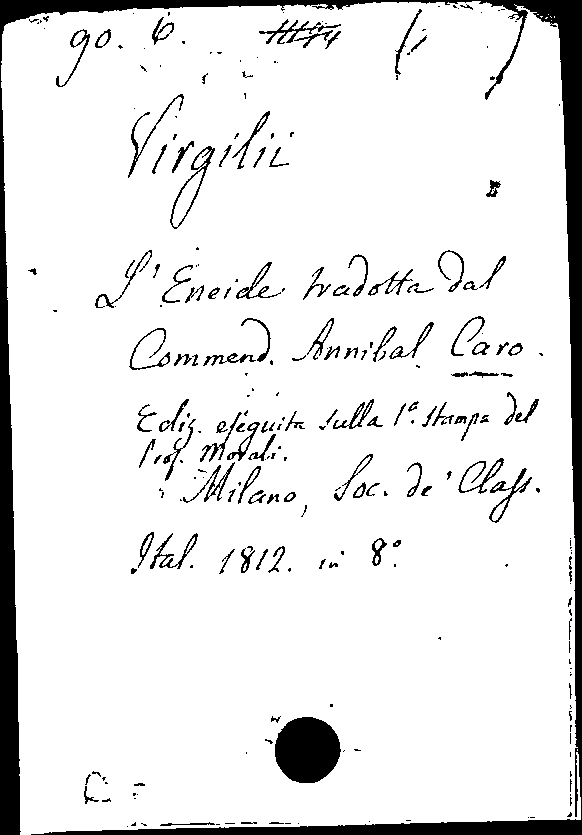 90. 6.
Virgilii
L'Eneide tradotta dal
Commend. Annibal Caro.
Ediz. eseguita sulla 1ª. stampa del
Prof. Morali.
Milano, Soc. de' Class.
Ital. 1812. in 8°.